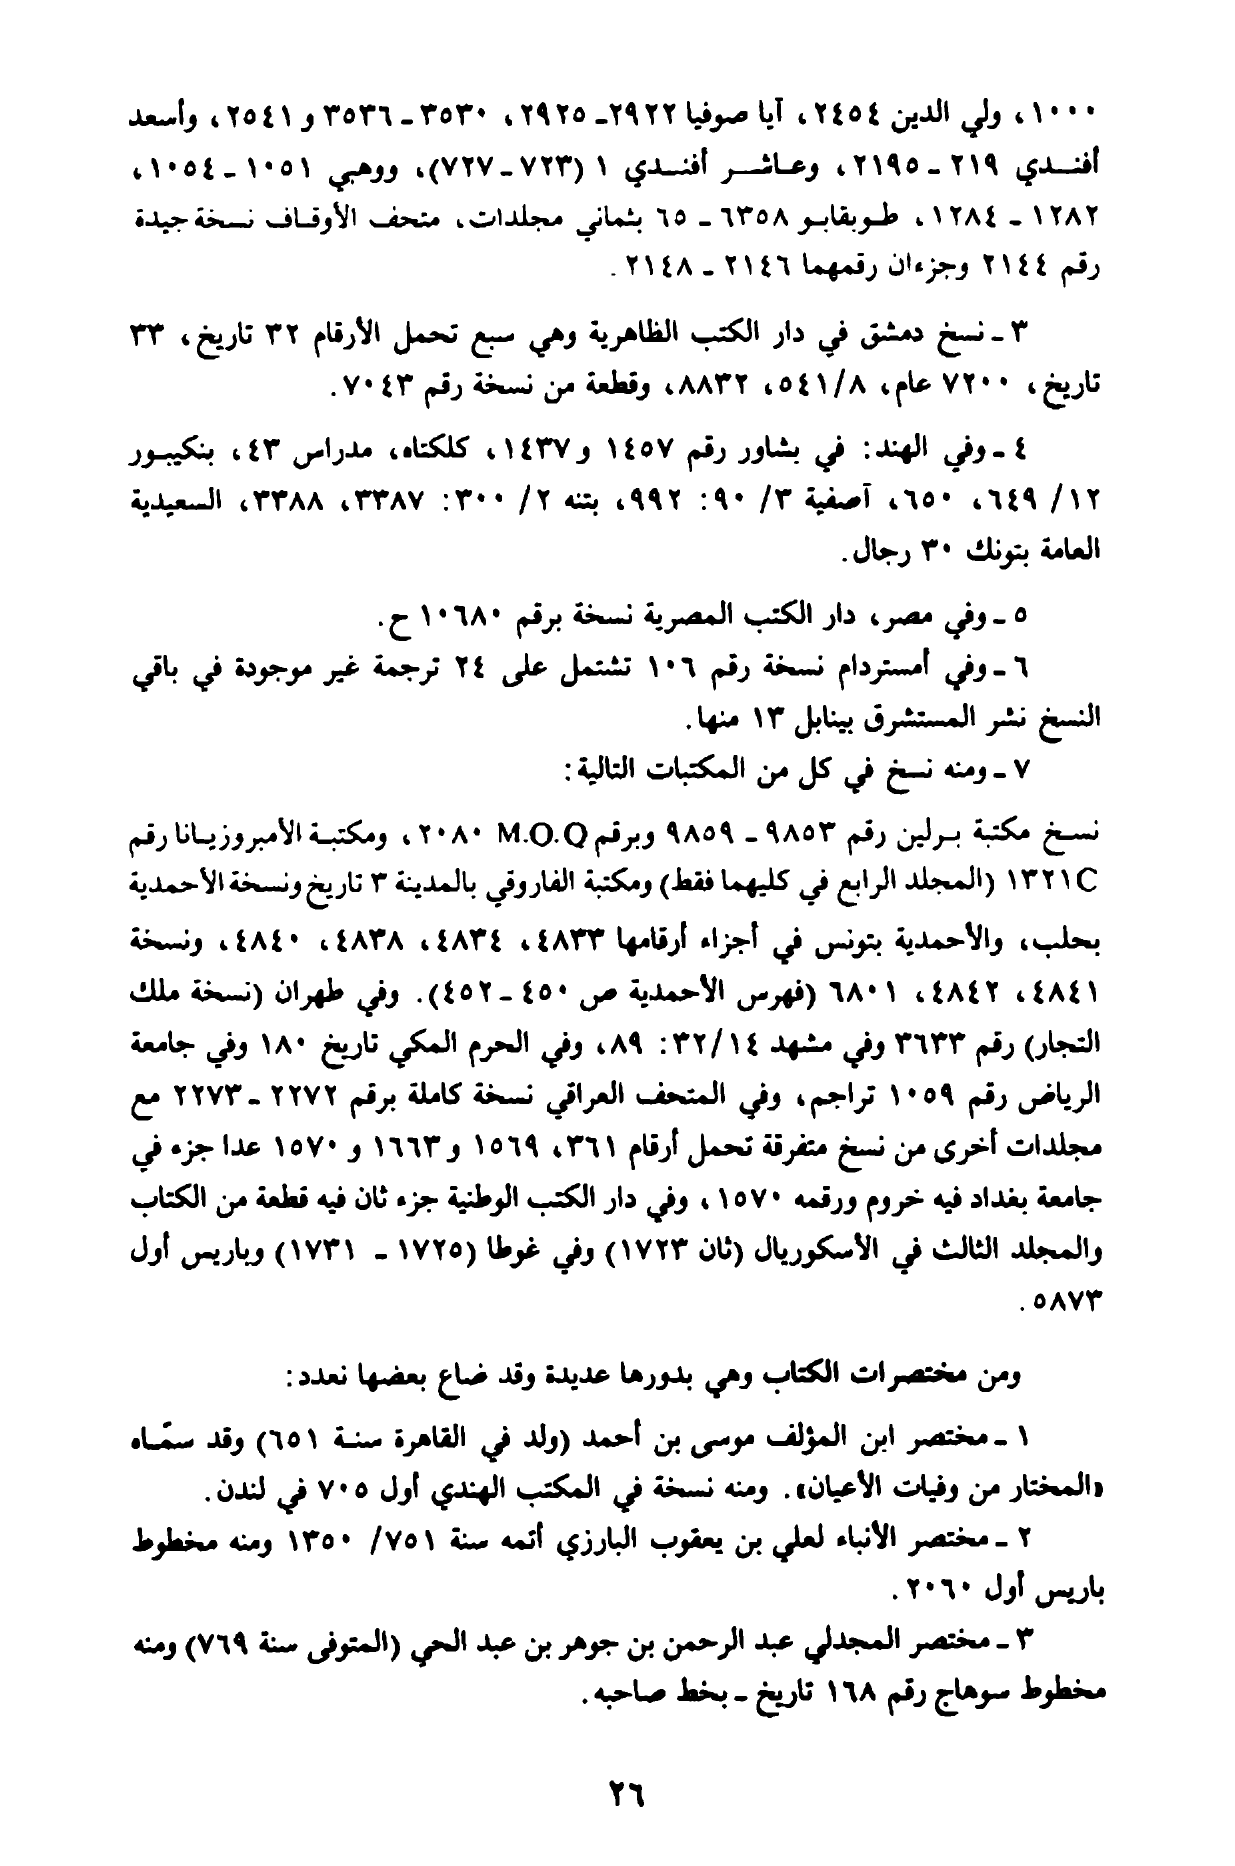 ١٠٠٠، ولي الدين ٢٤٥٤، آيا صوفيا ٢٩٢٢ـ ٢٩٢٥، ٣٥٣٠ـ ٣٥٣٦ و ٢٥٤١، وأسعد
أفنـدي ٢١٩ ـ ٢١٩٥، وعـاشـر أفنـدي ١ (٧٢٣ ـ ٧٢٧)، ووهبي ١٠٥١ ـ ١٠٥٤،
١٢٨٢ ـ ١٢٨٤، طـوبقابـو ٦٣٥٨ ـ ٦٥ بثماني مجلدات، متحف الأوقـاف نسخة جيدة
رقم ٢١٤٤ وجزءان رقمهما ٢١٤٦ ـ ٢١٤٨.
٣ ـ نسخ دمشق في دار الكتب الظاهرية وهي سبع تحمل الأرقام ٣٢ تاريخ، ٣٣
تاريخ، ٧٢٠٠ عام، ٥٤١/٨، ٨٨٣٢، وقطعة من نسخة رقم ٧٠٤٣.
٤ ـ وفي الهند: في بشاور رقم ١٤٥٧ و١٤٣٧، كلكتاه، مدراس ٤٣، بنكيبـور
١٢/ ٦٤٩، ٦٥٠، آصفية ٣/ ٩٠: ٩٩٢، بتنه ٢/ ٣٠٠: ٣٣٨٧، ٣٣٨٨، السعيدية
العامة بتونك ٣٠ رجال.
٥ ـ وفي مصر، دار الكتب المصرية نسخة برقم ١٠٦٨٠ ح.
٦ ـ وفي أمستردام نسخة رقم ١٠٦ تشتمل على ٢٤ ترجمة غير موجودة في باقي
النسخ نشر المستشرق بينابل ١٣ منها.
٧ ـ ومنه نسخ في كل من المكتبات التالية:
نسـخ مكتبة بـرلين رقم ٩٨٥٣ ـ ٩٨٥٩ وبرقم M.O.Q ٢٠٨٠، ومكتبـة الأمبروزيـانا رقم
١٣٢١C (المجلد الرابع في كليهما فقط) ومكتبة الفاروقي بالمدينة ٣ تاريخ ونسخة الأحمدية
بحلب، والأحمدية بتونس في أجزاء أرقامها ٤٨٣٣، ٤٨٣٤، ٤٨٣٨، ٤٨٤٠، ونسخة
٤٨٤١، ٤٨٤٢، ٦٨٠١ (فهرس الأحمدية ص ٤٥٠ ـ ٤٥٢). وفي طهران (نسخة ملك
التجار) رقم ٣٦٣٣ وفي مشهد ٣٢/١٤: ٨٩، وفي الحرم المكي تاريخ ١٨٠ وفي جامعة
الرياض رقم ١٠٥٩ تراجم، وفي المتحف العراقي نسخة كاملة برقم ٢٢٧٢ ـ ٢٢٧٣ مع
مجلدات أخرى من نسخ متفرقة تحمل أرقام ٣٦١، ١٥٦٩ و١٦٦٣ و ١٥٧٠ عدا جزء في
جامعة بغداد فيه خروم ورقمه ١٥٧٠، وفي دار الكتب الوطنية جزء ثان فيه قطعة من الكتاب
والمجلد الثالث في الأسكوريال (ثان ١٧٢٣) وفي غوطا (١٧٢٥ ـ ١٧٣١) وباريس أول
٥٨٧٣.
ومن مختصرات الكتاب وهي بدورها عديدة وقد ضاع بعضها نعدد:
١ ـ مختصر ابن المؤلف موسى بن أحمد (ولد في القاهرة سنـة ٦٥١) وقد سمّـاه
«المختار من وفيات الأعيان». ومنه نسخة في المكتب الهندي أول ٧٠٥ في لندن.
٢ ـ مختصر الأنباء لعلي بن يعقوب البارزي أتمه سنة ٧٥١/ ١٣٥٠ ومنه مخطوط
باريس أول ٢٠٦٠.
٣ ـ مختصر المجدلي عبد الرحمن بن جوهر بن عبد الحي (المتوفى سنة ٧٦٩) ومنه
مخطوط سوهاج رقم ١٦٨ تاريخ ـ بخط صاحبه.
٢٦